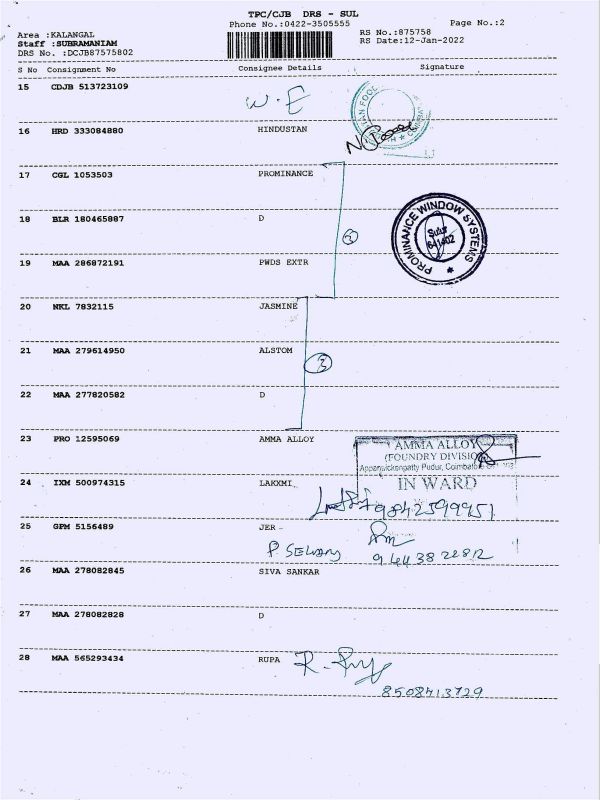 TPC/CJB DRS - SUL
Phone No.:0422-3505555 Page No.:2
Area :KALANGAL RS No.:875758
Staff :SUBRAMANIAM RS Date:12-Jan-2022
DRS No. :DCJB87575802
S No Consignment No Consignee Details Signature
15 CDJB 513723109
W.E
16 HRD 333084880 HINDUSTAN
17 CGL 1053503 PROMINANCE
18 BLR 180465887 D
PROMINANCE WINDOW SYSTEMS
Sulur
641402
2
19 MAA 286872191 PWDS EXTR
20 NKL 7832115 JASMINE
21 MAA 279614950 ALSTOM
3
22 MAA 277820582 D
23 PRO 12595069 AMMA ALLOY
AMMA ALLOY
(FOUNDRY DIVISION
Pudur, Coimbatore
24 IXM 500974315 LAKXMI
IN WARD
9842599951
25 GPM 5156489 JER -
P. SELVAM 9443822812
26 MAA 278082845 SIVA SANKAR
27 MAA 278082828 D
28 MAA 565293434 RUPA
8508413729